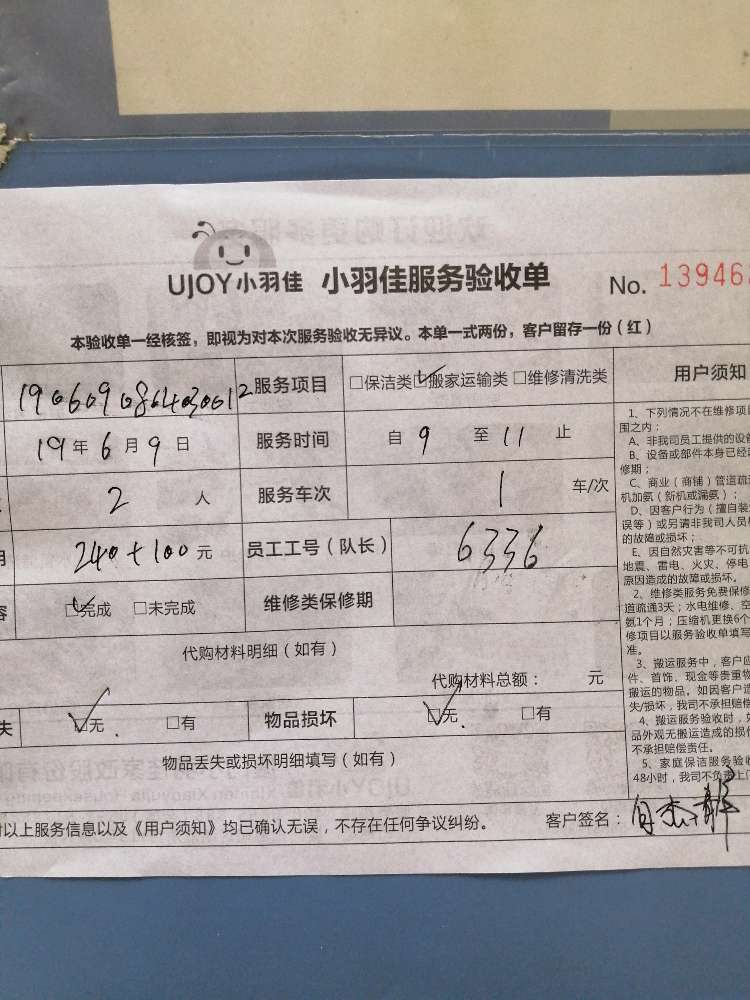 UJOY小羽佳 小羽佳服务验收单 No. 139468
本验收单一经核签，即视为对本次服务验收无异议。本单一式两份，客户留存一份（红）
服务项目 □保洁类 ☑搬家运输类 □维修清洗类
19年6月9日 服务时间 自 9 至 11 止
2 人 服务车次 1 车/次
240+100元 员工工号（队长） 6336
☑完成 □未完成 维修类保修期
代购材料明细（如有）
代购材料总额： 元
失 ☑无 □有 物品损坏 ☑无 □有
物品丢失或损坏明细填写（如有）
以上服务信息以及《用户须知》均已确认无误，不存在任何争议纠纷。 客户签名：
用户须知
1、下列情况不在维修项
围之内：
A、非我司员工提供的设
B、设备或部件本身已经
修期；
C、商业（商铺）管道疏
机加氨（新机或漏氨）；
D、因客户行为（擅自装
误等）或另请非我司人员
的故障或损坏；
E、因自然灾害等不可抗
地震、雷电、火灾、停电
原因造成的故障或损坏。
2、维修类服务免费保修
道疏通3天；水电维修、空
氨1个月；压缩机更换6个
修项目以服务验收单填写
准。
3、搬运服务中，客户应
件、首饰、现金等贵重物
搬运的物品。如因客户造
失/损坏，我司不承担赔偿
4、搬运服务验收时，
品外观无搬运造成的损
不承担赔偿责任。
5、家庭保洁服务验收
48小时，我司不负责上门